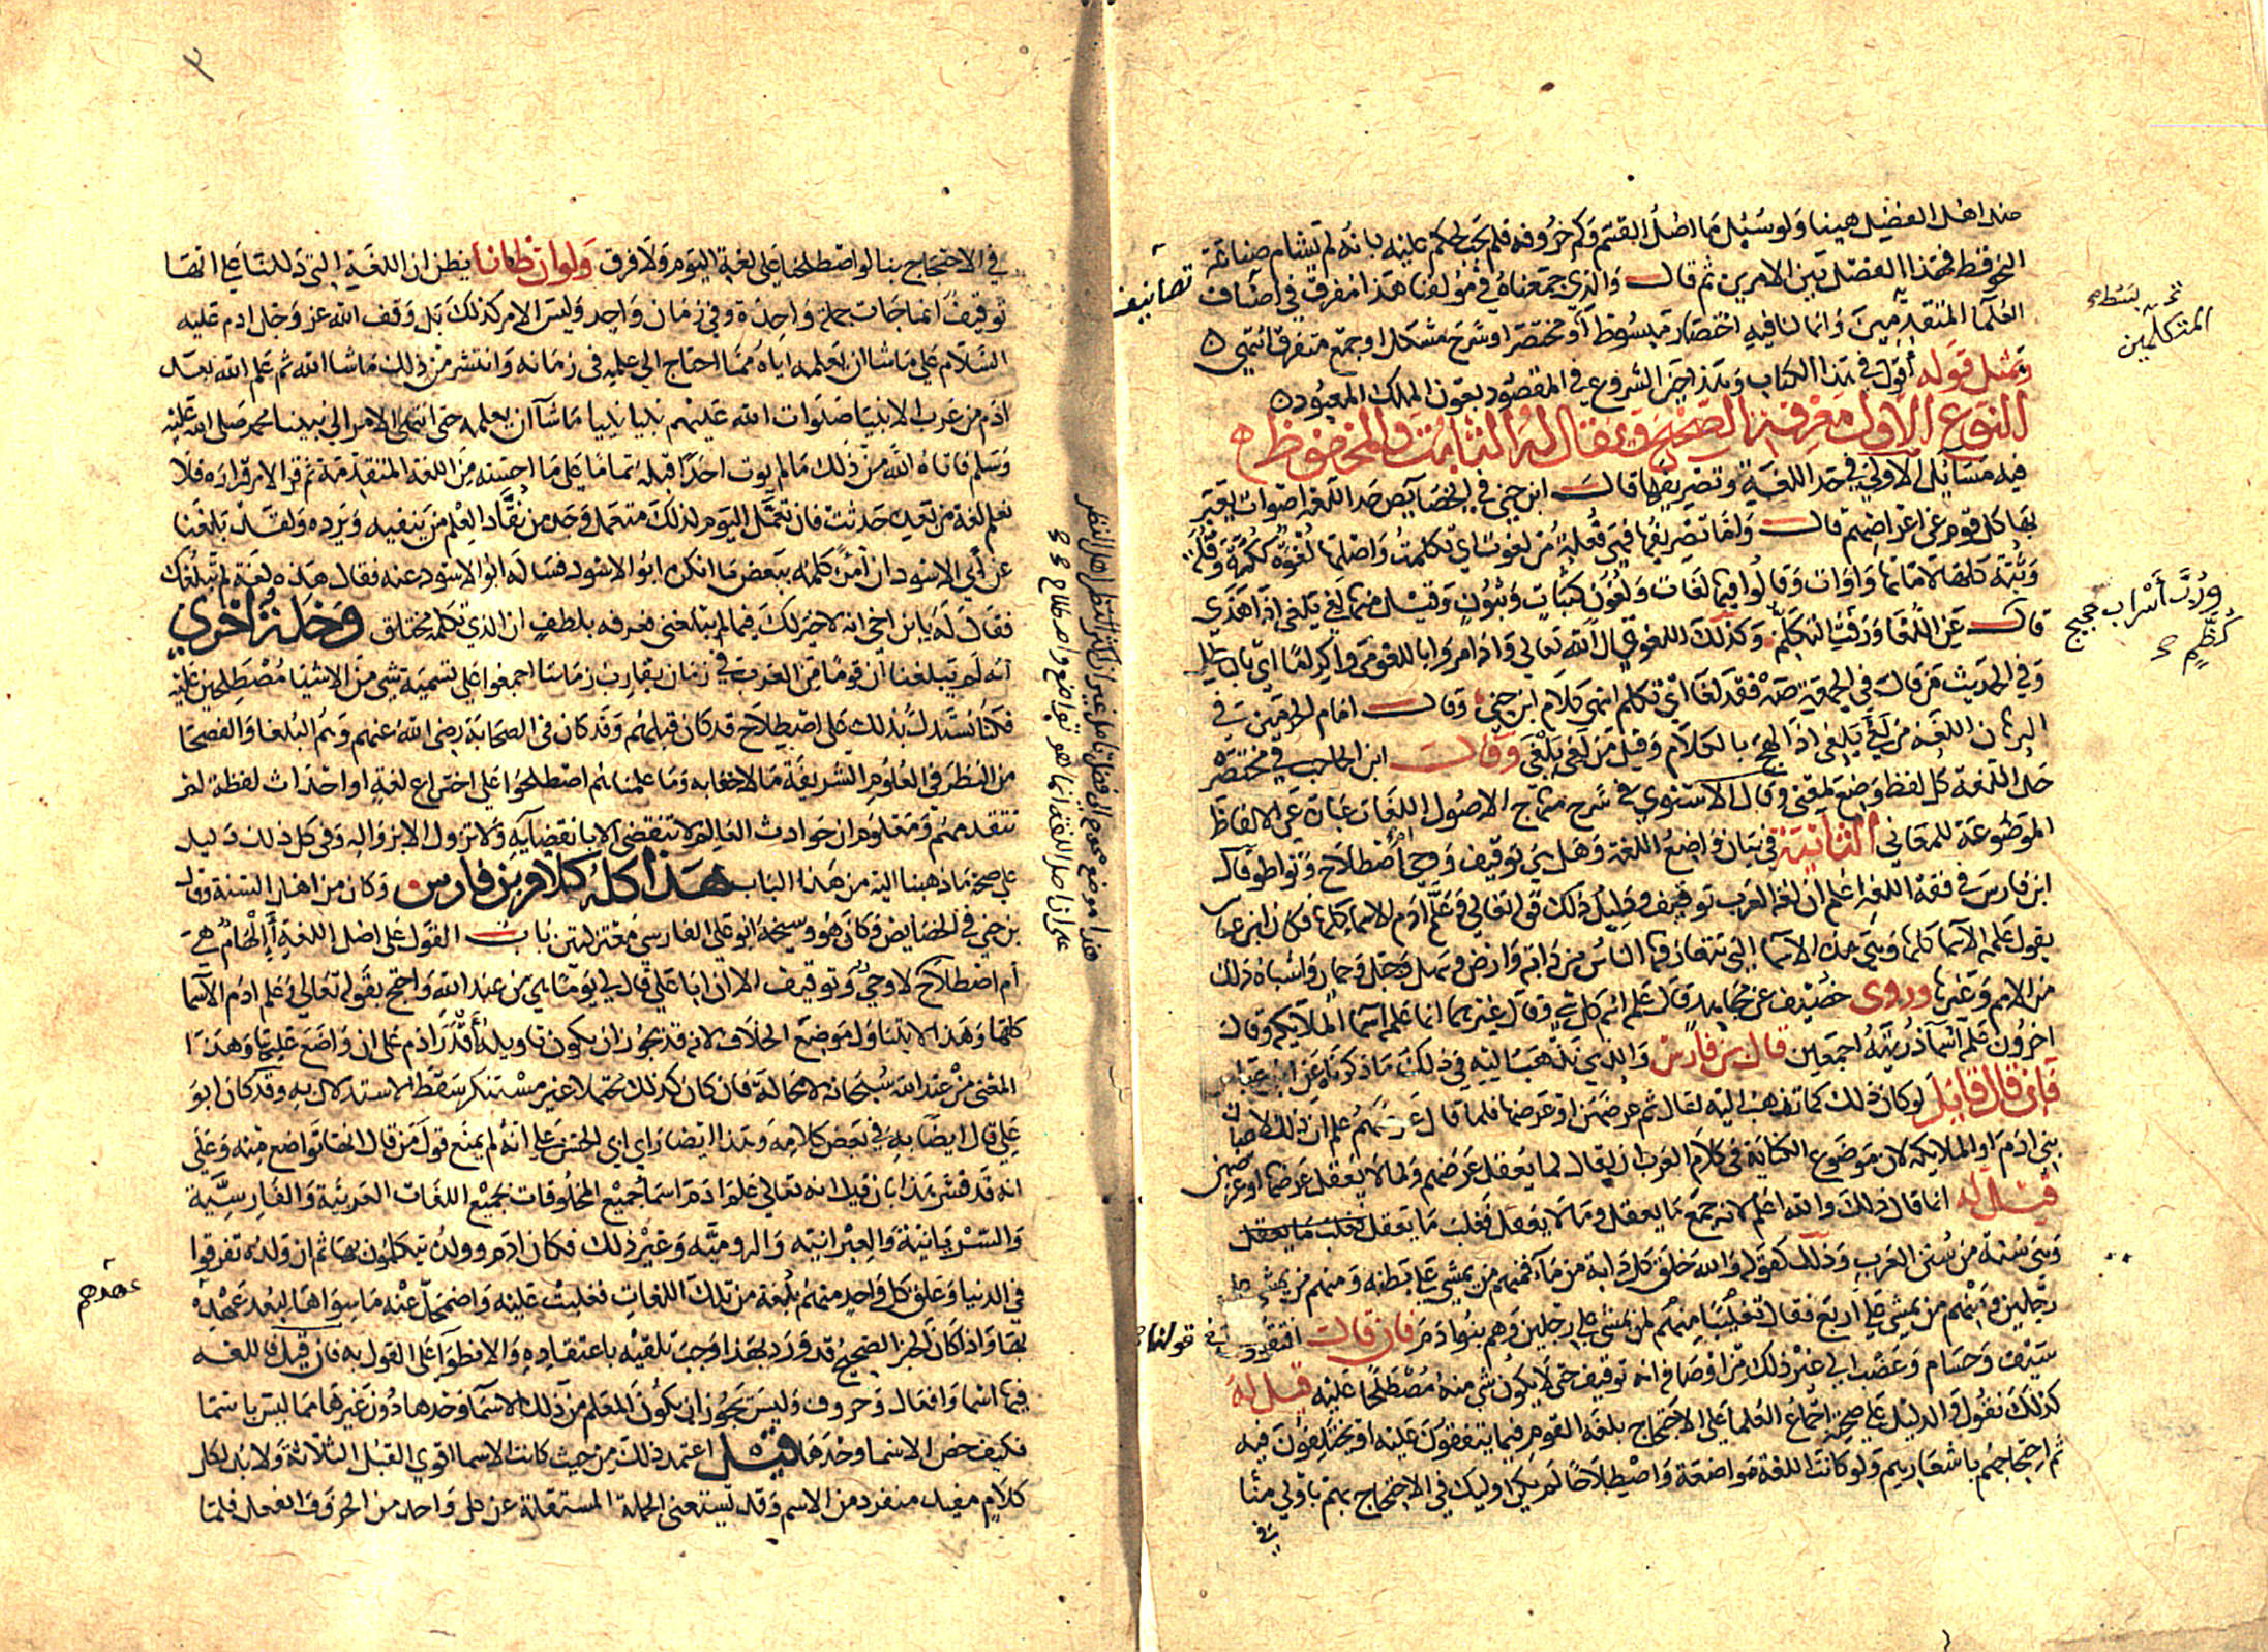 عند اهل الفضل هينا ولو سئل ما اصل القسم وكم حروفه فلم يجب لحكم عليه بانه لم يشام صناعة
النحو قط فهذا الفصل بين الامرين ثم قال والذي جمعناه في مؤلفنا هذا مفرق في اصناف
تصانيف
العلما المتقدمين وانما لنا فيه اختصار مبسوط او مختصرا وشرح مشكل او جمع متفرق انتهى
وبمثل قوله أقول في هذا الكتاب وهذا حين الشروع في المقصود بعون الملك المعبود
النوع الاول معرفة الصحيح ويقال له الثابت والمحفوظ
فيه مسايل الاولى في حد اللغة وتصريفها قال ابن جني في الخصايص حد اللغة اصوات يعبر
بها كل قوم عن اغراضهم قال واما تصريفها فهي فعلة من لغوت اي تكلمت واصلها لغوة ككرة وقلة
وثبة كلها لاماتها واوات وقالوا فيها لغات ولغون كثبات وثبون وقيل منها لغي يلغى اذا هذي
قال عن اللغا ورفث التكلم وكذلك اللغو قال الله تعالى واذا مروا باللغو مروا كراما اي بالباطل
وفي الحديث من قال في الجمعة صه فقد لغا اي تكلم انتهى كلام ابن جني وقال امام الحرمين في
البرهان اللغة من لغي يلغى اذا لهج بالكلام وقيل من لغى يلغى وقال ابن الحاجب في مختصره
حد اللغة كل لفظ وضع لمعنى وقال الاسنوي في شرح منهاج الاصول اللغات عبارة عن الالفاظ
الموضوعة للمعاني الثانية في بيان واضع اللغة وهل هي توقيف ووحي أم اصطلاح وتواطو قال
ابن فارس في فقه اللغة اعلم ان لغة العرب توقيف ودليل ذلك قوله تعالى وعلم آدم الاسما كلها فكان ابن عباس
يقول علمه الاسما كلها وهي هذه الاسما التي يتعارفها الناس من دابة وارض وسهل وجبل وحمار واشباه ذلك
من الامم وغيرها وروى خصيف عن مجاهد قال علمه اسم كل شي وقال غيرهما انما علمه اسما الملايكة وقال
اخرون علمه اسما ذريته اجمعين قال بن فارس والذي نذهب اليه في ذلك ما ذكرناه عن ابن عباس
فان قال قايل لو كان ذلك كما تذهب اليه لقال ثم عرضهن او عرضها فلما قال عرضهم علم ان ذلك لاعيان
بني ادم او الملايكة لان موضوع الكناية في كلام العرب ان يقال لما يعقل عرضهم ولما لا يعقل عرضها او عرضهن
قيل له انما قال ذلك والله اعلم لانه جمع ما يعقل وما لا يعقل فغلب ما يعقل فغلب ما يعقل
وهي سنة من سنن العرب وذلك كقوله والله خلق كل دابة من ماء فمنهم من يمشي على بطنه ومنهم من يمشي على
رجلين ومنهم من يمشي على اربع فقال تغليبا منهم لمن يمشي على رجلين وهم بنو ادم فان قال افتقولون
في قولنا
سيف وحسام وعضب الى غير ذلك من اوصافه انه توقيف حتى لا يكون شي منه مصطلحا عليه قيل له
كذلك نقول والدليل على صحته اجماع العلما على الاحتجاج بلغة القوم فيما يتفقون عليه او يختلفون فيه
ثم احتجاجهم باشعارهم ولو كانت اللغة مواضعة واصطلاحا لم يكن اوليك في الاحتجاج بهم باولى منا
في
المتكلمين
ورُبَّ أسْراب حجيج
كُظَّمِ
٣
في الاحتجاج بنا لو اصطلحنا على لغة اليوم ولا فرق ولعل ظانا يظن ان اللغة التي دللنا على انها
توقيف انما جات جملة واحدة وفي زمان واحد وليس الامر كذلك بل وقف الله عز وجل ادم عليه
السلام على ما شا ان يعلمه اياه مما احتاج الى علمه في زمانه وانتشر من ذلك ما شا الله ثم علم الله بعد
ادم من عرب الانبيا صلوات الله عليهم نبيا نبيا ما شآ ان يعلمه حتى انتهى الامر الى نبينا محمد صلى الله عليه
وسلم فاتاه الله من ذلك ما لم يوت احدا قبله تماما على ما احسنه من اللغة المتقدمة ثم قر الامر قراره فلا
نعلم لغة من بعده حدثت فان تعمل اليوم لذلك متعمل وجد من نقاد العلم من ينفيه ويرده ولقد بلغنا
عن أبي الاسود ان امرءا كلمه ببعض ما انكره ابو الاسود فساله ابو الاسود عنه فقال هذه لغة لم تبلغك
فقال له يا ابن اخي انه لا خير لك فيما لم يبلغني فعرفه بلطف ان الذي تكلم به مختلق وخلة اخرى
انه لم يبلغنا ان قوما من العرب في زمان يقارب زماننا اجمعوا على تسمية شي من الاشيا مصطلحين عليه
فكنا نستدل بذلك على اصطلاح قد كان قبلهم وقد كان في الصحابة رضي الله عنهم وهم البلغا والفصحا
من النظر في العلوم الشريفة ما لا خفا به وما علمناهم اصطلحوا على اختراع لغة او احداث لفظة لم
تتقدمهم ومعلوم ان حوادث العالم لا تنقضي الا بانقضايه ولا تزول الا بزواله وفي كل ذلك دليل
على صحة ما ذهبنا اليه من هذا الباب هذا كله كلام بن فارس وكان من اهل السنة وقال
بن جني في الخصايص وكان هو وشيخه ابو علي الفارسي معتزليين باب القول على اصل اللغة أإلهام هي
أم اصطلاح لا وحي وتوقيف الا ان ابا علي قال لي يوما هي من عند الله واحتج بقوله تعالى وعلم ادم الاسما
كلها وهذا لا يتناول موضع الخلاف لانه قد يجوز ان يكون تاويله أقدر ادم على ان واضع عليها وهذا
المعنى من عند الله سبحانه لا محالة فان كان كذلك محتملا غير مستنكر سقط الاستدلال به وقد كان ابو
علي قال ايضا به في بعض كلامه وهذا ايضا راي ابي الحسن على انه لم يمنع قول من قال انها تواضع منه وعلى
انه قد فسر هذا بان قيل انه تعالى علم ادم اسما جميع المخلوقات بجميع اللغات العربية والفارسية
والسريانية والعبرانية والرومية وغير ذلك فكان ادم وولده يتكلمون بها ثم ان ولده تفرقوا
في الدنيا وعلق كل واحد منهم بلغة من تلك اللغات فغلبت عليه واضمحل عنه ما سواها لبعد عهده
عهدهم
بها واذا كان الخبر الصحيح قد ورد بهذا وجب تلقيه باعتقاده والانطواء على القول به فان قيل فاللغة
فيها اسما وافعال وحروف وليس يجوز ان يكون المعلم من ذلك الاسما وحدها دون غيرها مما ليس باسما
فكيف خص الاسما وحدها قيل اعتمد ذلك من حيث كانت الاسما اقوى القبل الثلاثة ولا بد لكل
كلام مفيد منفرد من الاسم وقد تستغني الجملة المستقلة عن كل واحد من الحرف والفعل فلما